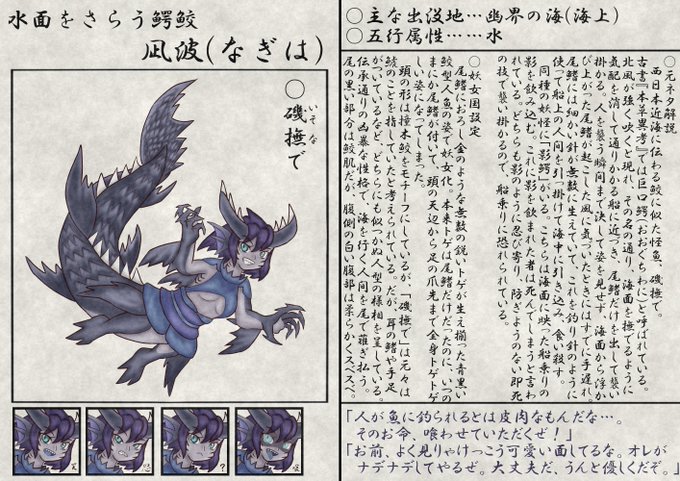 水面をさらう鰐鮫
凪波(なぎは)
○磯撫で
いそな
笑
怒
?
○主な出没地……幽界の海(海上)
○五行属性……水
○元ネタ解説
西日本近海に伝わる鮫に似た怪魚、磯撫で。
古書『本草異考』では巨口鰐(おおぐちわに)と呼ばれている。
北風が強く吹くと現れ、その名の通り、海面を撫でるように
気配を消して通りかかる船に近づき、尾鰭だけを出して襲い
掛かる。人を襲う瞬間まで決して姿を見せず、海面から浮か
び上がった尾鰭が起こした風に気づいたときにはすでに手遅れ。
尾鰭には細かい針が無数に生えていて、これを釣り針のように
使って船上の人間を引っ掛けて海中に引き込み、食い殺す。
同種の妖怪に「影鰐」がいる。こちらは海面に映った船乗りの
影を飲み込む。これに影を飲まれた者は死んでしまうと言わ
れている。どちらも影のように忍び寄り、防ぎようのない即死
の技で襲い掛かるので、船乗りに恐れられている。
○妖女国設定
尾鰭におろし金のような無数の鋭いトゲが生え揃った青黒い
鮫型人魚の姿で妖女化。本来トゲは尾鰭だけだったのが、いつの
まにか尾鰭が付いて、頭の天辺から足の爪先まで全身トゲトゲ
しい姿になってしまった。
頭の形は撞木鮫をモチーフにしているが、「磯撫で」は元々は
鯱のことを指していたと考えられている。だが、耳の鰭や手足
がついているなど、どちらにも似つかぬ人型の様相を呈している。
伝承通りの凶暴な性格で、海を行く人間を尾で薙ぎ払う。
尾の黒い部分は鮫肌だが、腹側の白い腹部は柔らかくスベスベ。
「人が魚に釣られるとは皮肉なもんだな…。
そのお命、喰わせていただくぜ!」
「お前、よく見りゃけっこう可愛い面してるな。オレが
ナデナデしてやるぜ。大丈夫だ、うんと優しくだぞ。」